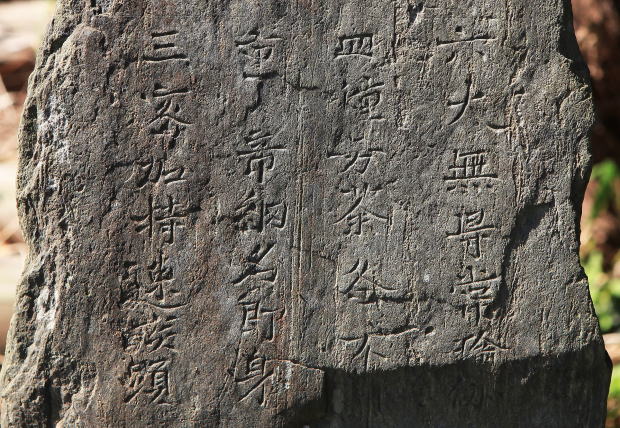 六大無㝵常瑜伽
四種万荼各不
重帝網名即身
三密加持速疾顕